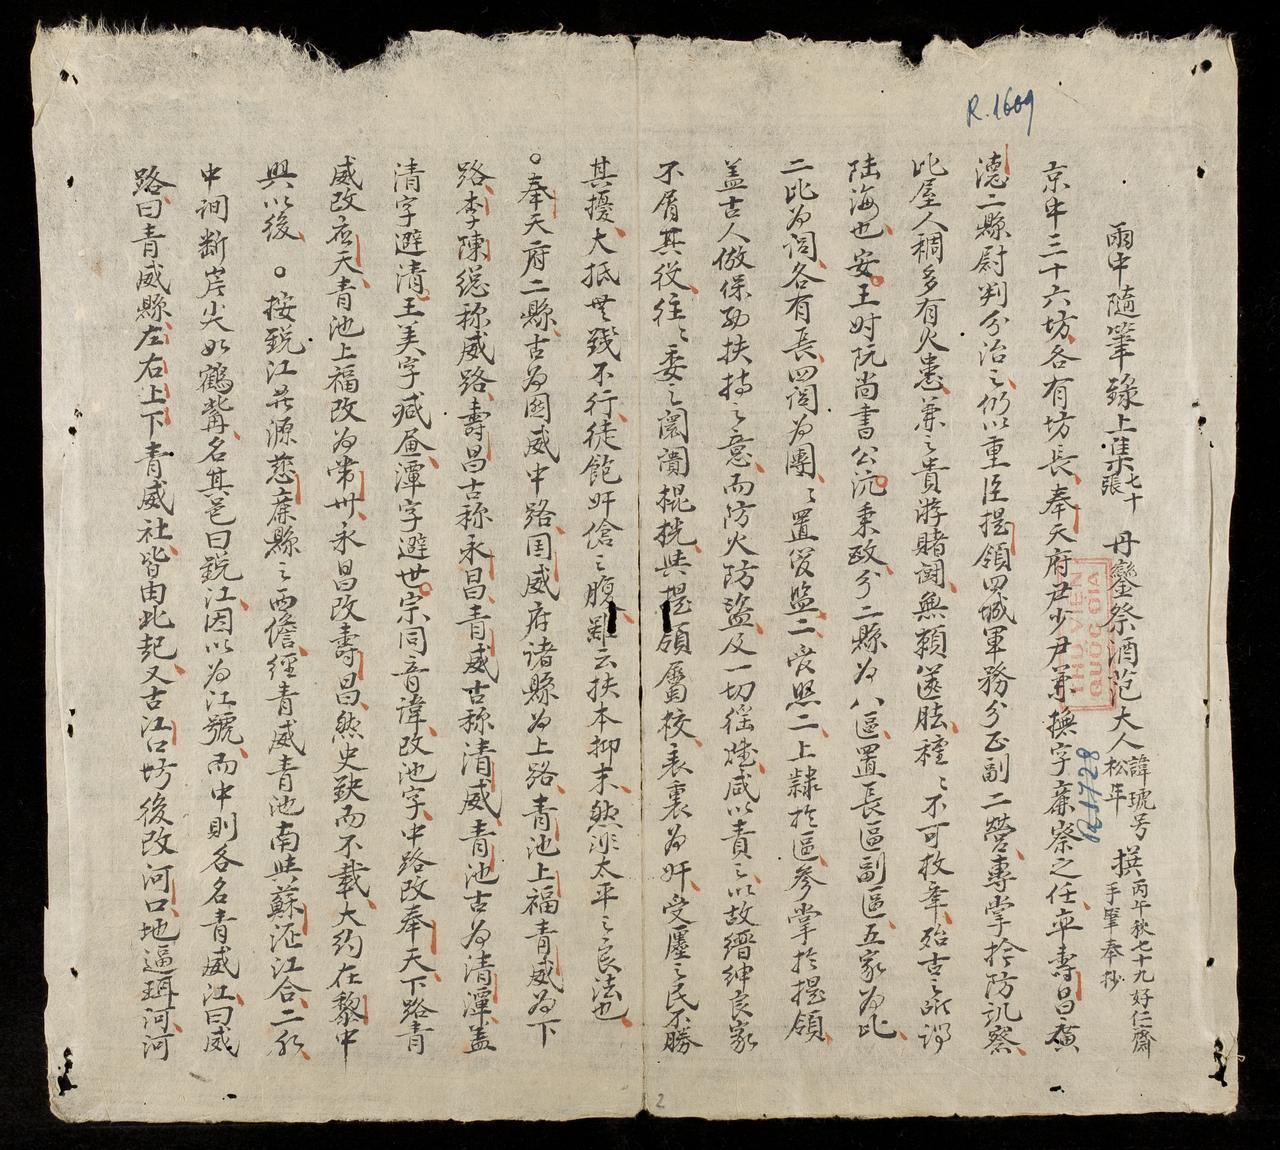 R.1609
雨中隨筆錄上集 七十張 丹鑾祭酒范大人 諱琥号松年 撰 丙午秋七十九好仁齋手筆奉抄
京中三十六坊各有坊長奉天府尹少尹兼撫字廉察之任率壽昌廣
德二縣尉判分治之仍以重臣提領四城軍務分正副二營專掌拎防訊察
比屋人稠多有火患兼之貴游賭鬪無賴遂胠種〻不可枚牽殆古之所謂
陆海也安王时阮尚書公沆秉政分二縣为八區置長區副區五家为比
二比为闾各有長四闾为團〻置管監二管照二上隸於區參掌於提領
盖古人倣保劲扶持之意而防火防盜及一切徭燧咸以責之以故縉紳良家
不屑其役往〻委之闤闠棍攩與提領屬校表裏为奸受廛之民不勝
其擾大抵無錢不行徒飽奸傖之腹雖云扶本抑末然非太平之良法也
○奉天府二縣古为国威中路国威府诸縣为上路青池上福青威为下
路李陳總称威路壽昌古称永昌青威古称清威青池古为清潭盖
清字避清王美字減畫潭字避世宗同音諱改池字中路改奉天下路青
威改应天青池上福改为常州永昌改壽昌然史缺而不載大約在黎中
興以後○按銳江其源慈廉縣之西儋經青威青池南與蘇瀝江合二水
中间断岸尖如鶴觜名其邑曰銳江因以为江號而中則各名青威江曰威
路曰青威縣左右上下青威社皆由此起又古江口坊後改河口地逼珥河河
THU VIEN
QUOC GIA
R.1728
2